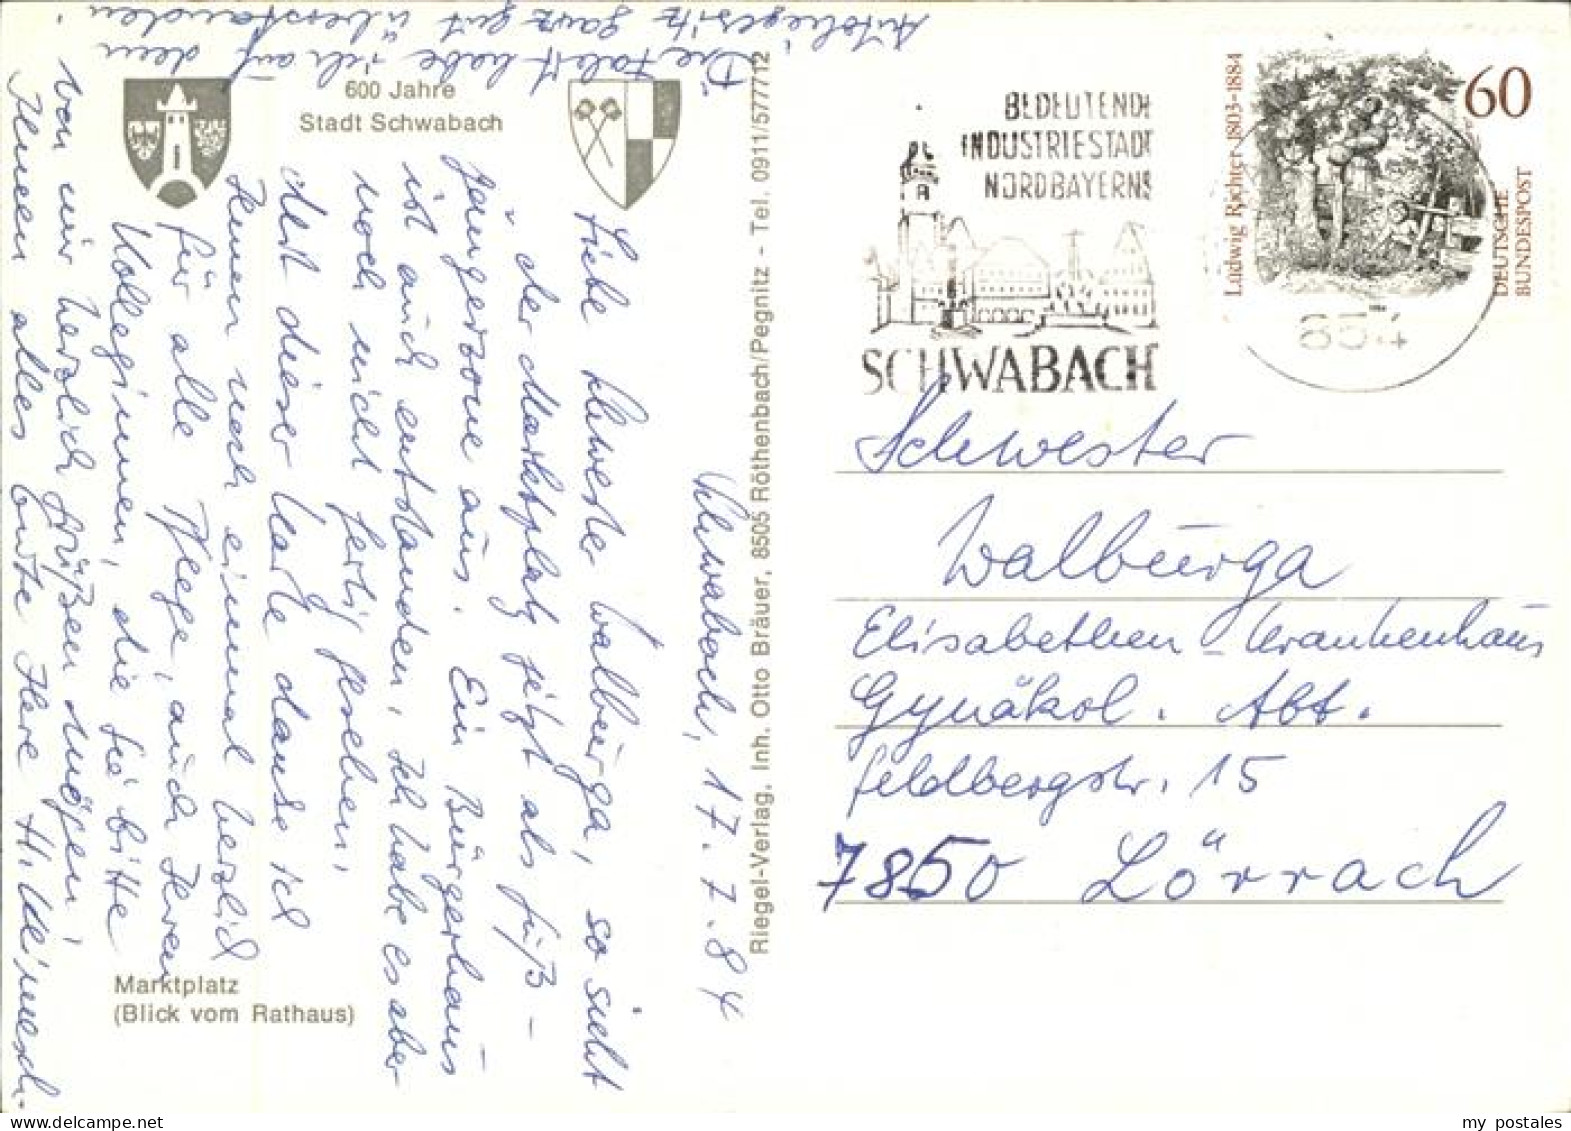 600 Jahre
Stadt Schwabach
Marktplatz
(Blick vom Rathaus)
Riegel-Verlag, Inh. Otto Bräuer, 8505 Röthenbach/Pegnitz - Tel. 0911/577712
Schwabach, 17.7.84
Liebe Schwester Walburga, so sieht
der Marktplatz jetzt als Fuß-
gängerzone aus. Ein Bürgerhaus
ist auch entstanden, ich habe es aber
noch nicht fertig gesehen.
Mit dieser Karte danke ich
Ihnen noch einmal herzlich
für alle Pflege, auch Ihren
Kolleginnen, die Sie bitte
von mir herzlich grüßen mögen!
Ihnen alles Gute Ihre H.
Die Fahrt habe ich auf dem
Autoliegesitz ganz gut überstanden!
BEDEUTENDE
INDUSTRIESTADT
NORDBAYERNS
SCHWABACH
Ludwig Richter 1803-1884
60
DEUTSCHE
BUNDESPOST
854
Schwester
Walburga
Elisabethen-Krankenhaus
Gynäkol. Abt.
Feldbergstr. 15
7850 Lörrach
my_postales